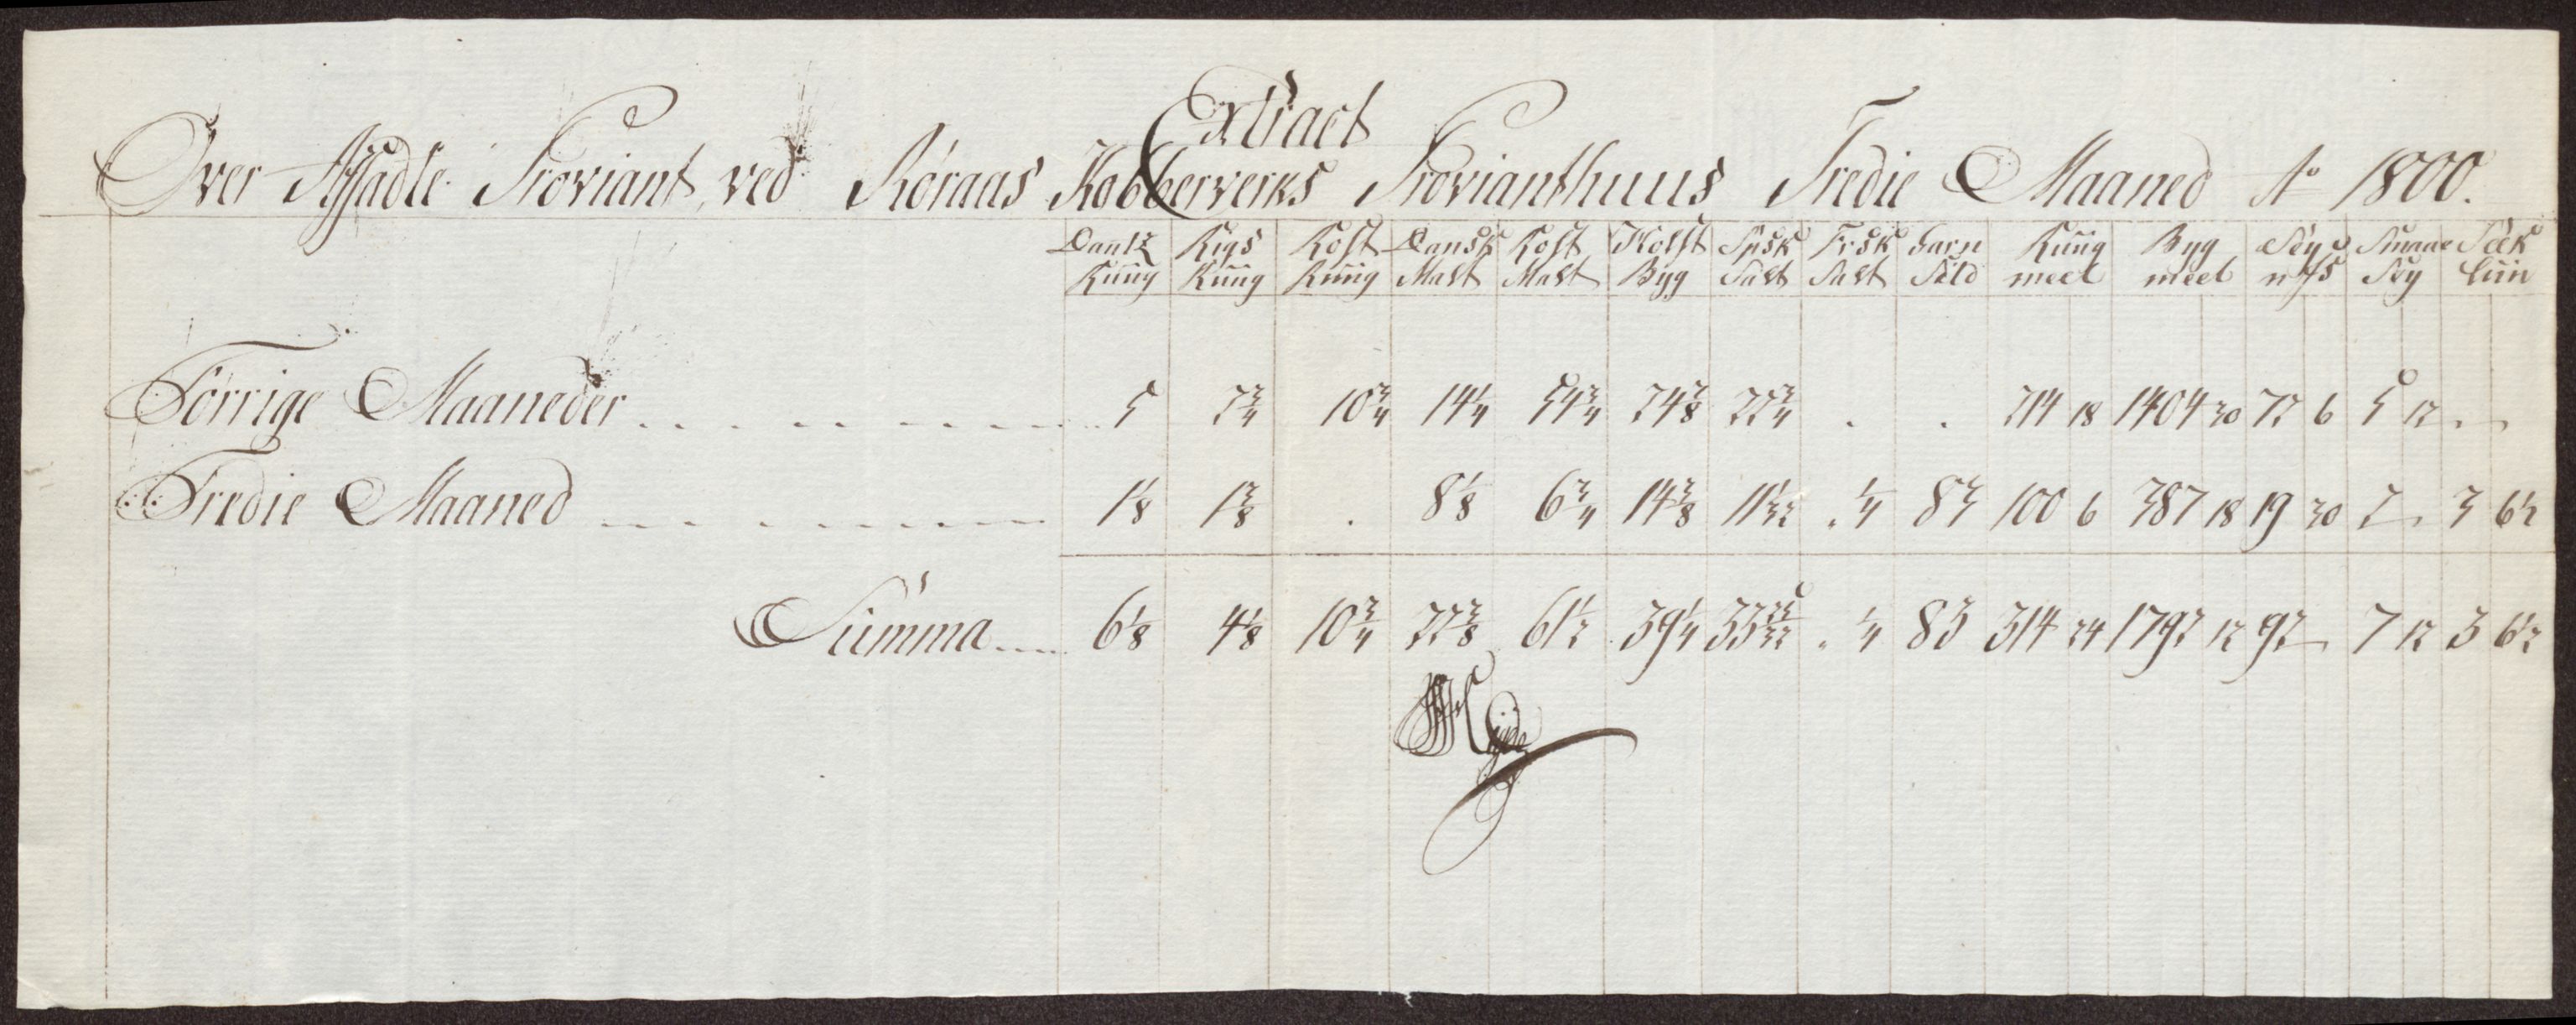 Extract
Over Afsadte Proviant ved Röraas Kobberverks Provianthuus Tredie Maaned Ao 1800.
Dantz Rüüg Rigs Rüüg Rost Rüüg Dansk Malt Rost Malt Holst Byg Spsk Salt Frsk Salt Garn Sild Rüüg meel Byg meel Smaae Sey Tæk
Förrige Maaneder 5 2 3/4 10 3/4 14 1/4 54 3/4 24 7/8 22 3/4 . . 214 18 1404 30 72 6 5 12 . .
Tredie Maaned 1 1/8 1 3/8 . 8 1/8 6 3/4 14 3/8 11 1/32 . 1/4 83 100 6 387 18 19 30 2 3 6 1/2
Summa 6 1/8 4 1/8 10 3/4 22 3/8 61 1/2 39 1/4 33 25/32 . 1/4 83 314 24 1792 12 92 7 12 3 6 1/2